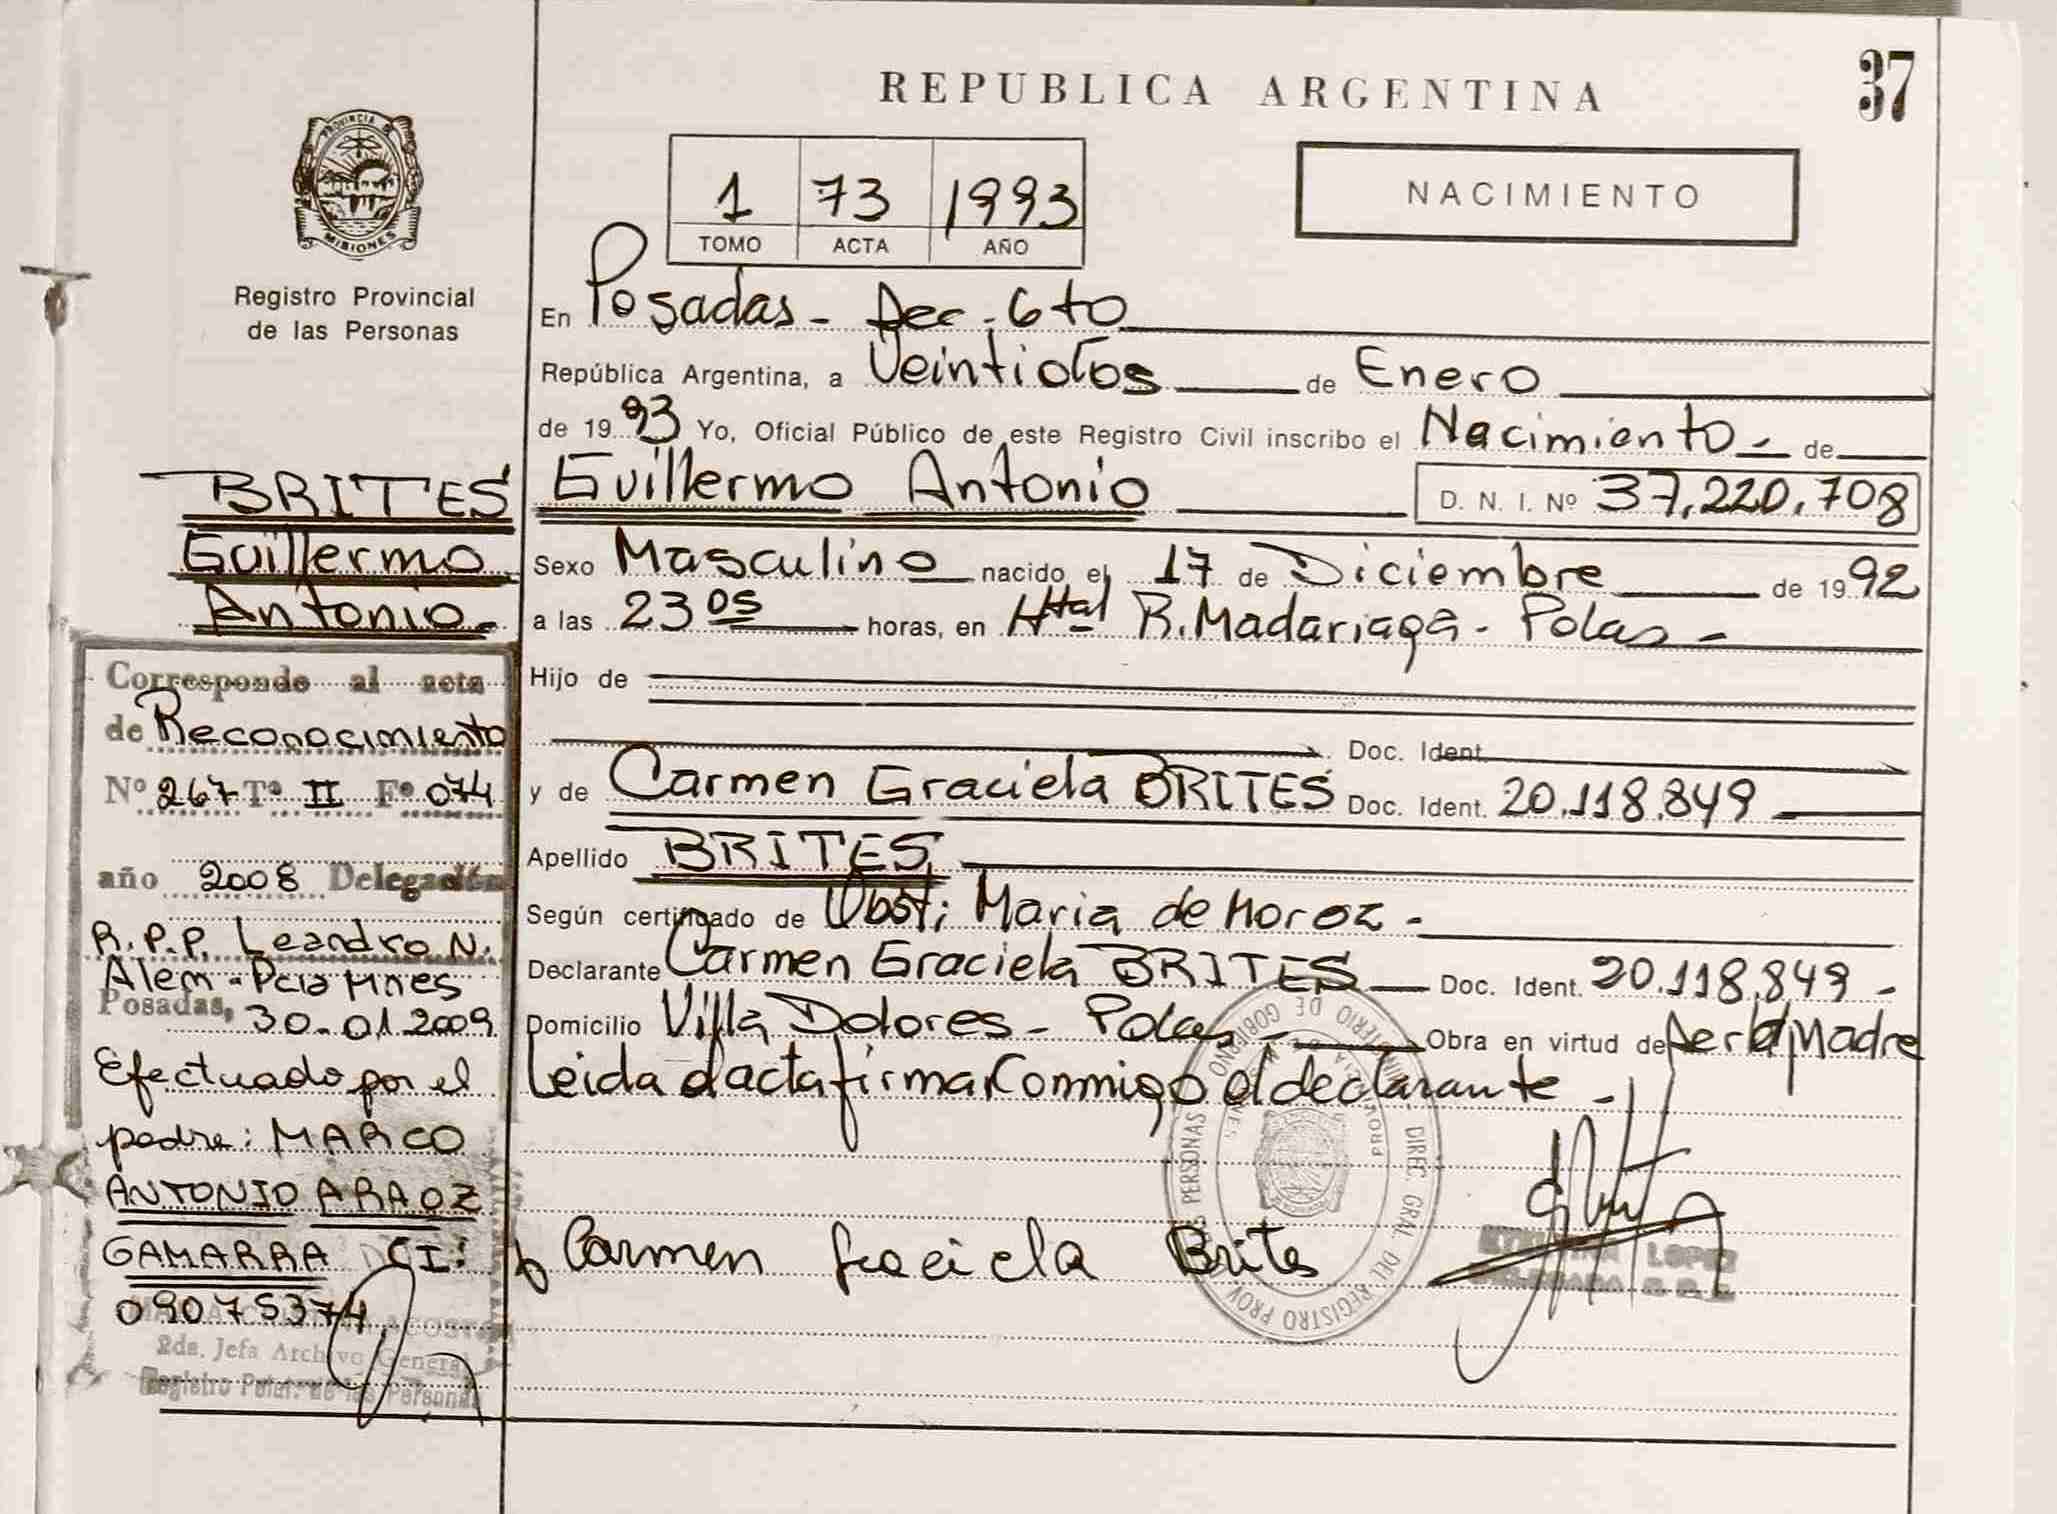 REPUBLICA ARGENTINA
37
PROVINCIA DE
MISIONES
Registro Provincial
de las Personas
1 73 1993
TOMO ACTA AÑO
NACIMIENTO
En Posadas - Sec. 6to
República Argentina, a Veintidos de Enero
de 1993 Yo, Oficial Público de este Registro Civil inscribo el Nacimiento - de
Guillermo Antonio D. N. I. Nº 37.220.708
Sexo Masculino nacido el 17 de Diciembre de 1992
a las 23 05 horas, en Htal R. Madariaga - Pdas -
Hijo de
Doc. Ident.
y de Carmen Graciela BRITES Doc. Ident. 20.118.849
Apellido BRITES
Según certificado de Obst: Maria de Moroz -
Declarante Carmen Graciela BRITES Doc. Ident. 20.118.849 -
Domicilio Villa Dolores - Pdas - Obra en virtud de Ser la Madre
Leida el acta firma Conmigo el declarante -
Carmen Graciela Brites
LOPEZ
DELEGADA
MINISTERIO DE GOBIERNO
DIREC. GRAL. DEL REGISTRO PROV. PERSONAS
BRITES
Guillermo
Antonio -
Corresponde al acta
de Reconocimiento
Nº 267 Tº II Fº 074
año 2008 Delegación
R.P.P. Leandro N.
Alem - Pcia Mnes
Posadas, 30-01-2009
Efectuado por el
padre: MARCO
ANTONIO ARAOZ
GAMARRA CI:
09075374
ACOSTA
2da. Jefa Archivo General
Registro Pcial. de las Personas